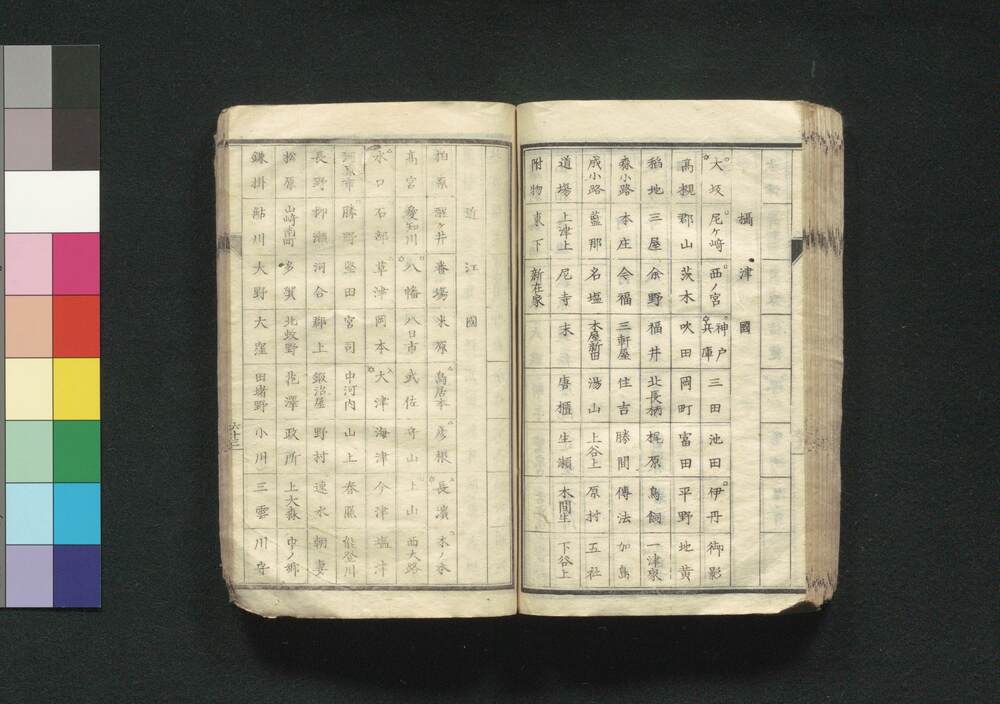 攝津國
大坂 尼ヶ崎 西ノ宮 神戸 兵庫 三田 池田 伊丹 御影
高槻 郡山 茨木 吹田 岡町 富田 平野 地黄
稻地 三屋 余野 福井 北長柄 梶原 鳥飼 一津屋
森小路 本庄 今福 三軒屋 住吉 勝間 傳法 加島
成小路 藍那 名塩 木屋新田 湯山 上谷上 原村 五社
道場 上津上 尼寺 末 唐櫃 生瀬 木間生 下谷上
附物 東下 新在家
近江國
柏原 醒ヶ井 番場 米原 鳥居本 彦根 長濱 木ノ本
高宮 愛知川 八幡 八日市 武佐 守山 上山 西大路
水口 石部 草津 岡本 大津 海津 今津 塩津
勝野 堅田 宮司 中河内 山上 春照 能登川
長野 柳瀬 河合 郡上 鍛冶屋 野村 速水 朝妻
松原 山崎南岡 多賀 北蚊野 花澤 政所 上大森 中ノ郷
鎌掛 鮎川 大野 大窪 田堵野 小川 三雲 川守
六十三